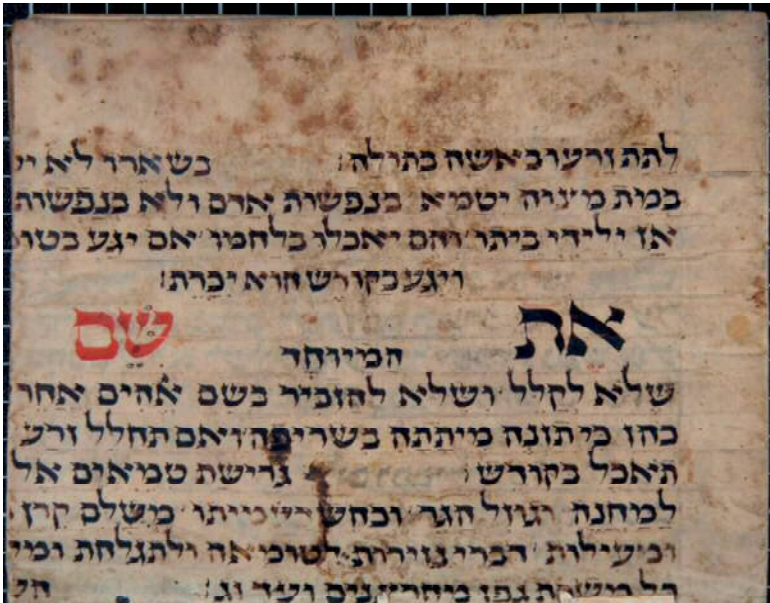 לתת זרעו באשה בתולה׃ כשארו לא
במת מצוה יטמא בנפשות אדם ולא בנפשות
אז ילידי ביתו והם יאכלו בלחמו אם יגע בטומ
ויגע בקודש הוא יכרת׃
את המיוחד שם
שלא לקלל ושלא להזכיר בשם אהים אחר
כהן כי תזנה מיתתה בשריפה ואם תחלל זרע
תיאכל בקודש גרישת טמאים אל
למחנה וגוזל הגר וכחש משלם קרן
ומעילות דברי נזירות לטומאה ולתגלחת ומי
גפן ועוד וג׳